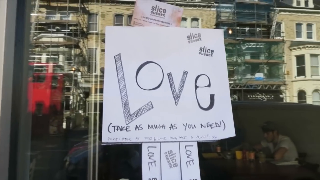 slice
slice
slice
Love
(TAKE AS MUCH AS YOU NEED!)
slice
LOVE
slice
LOVE